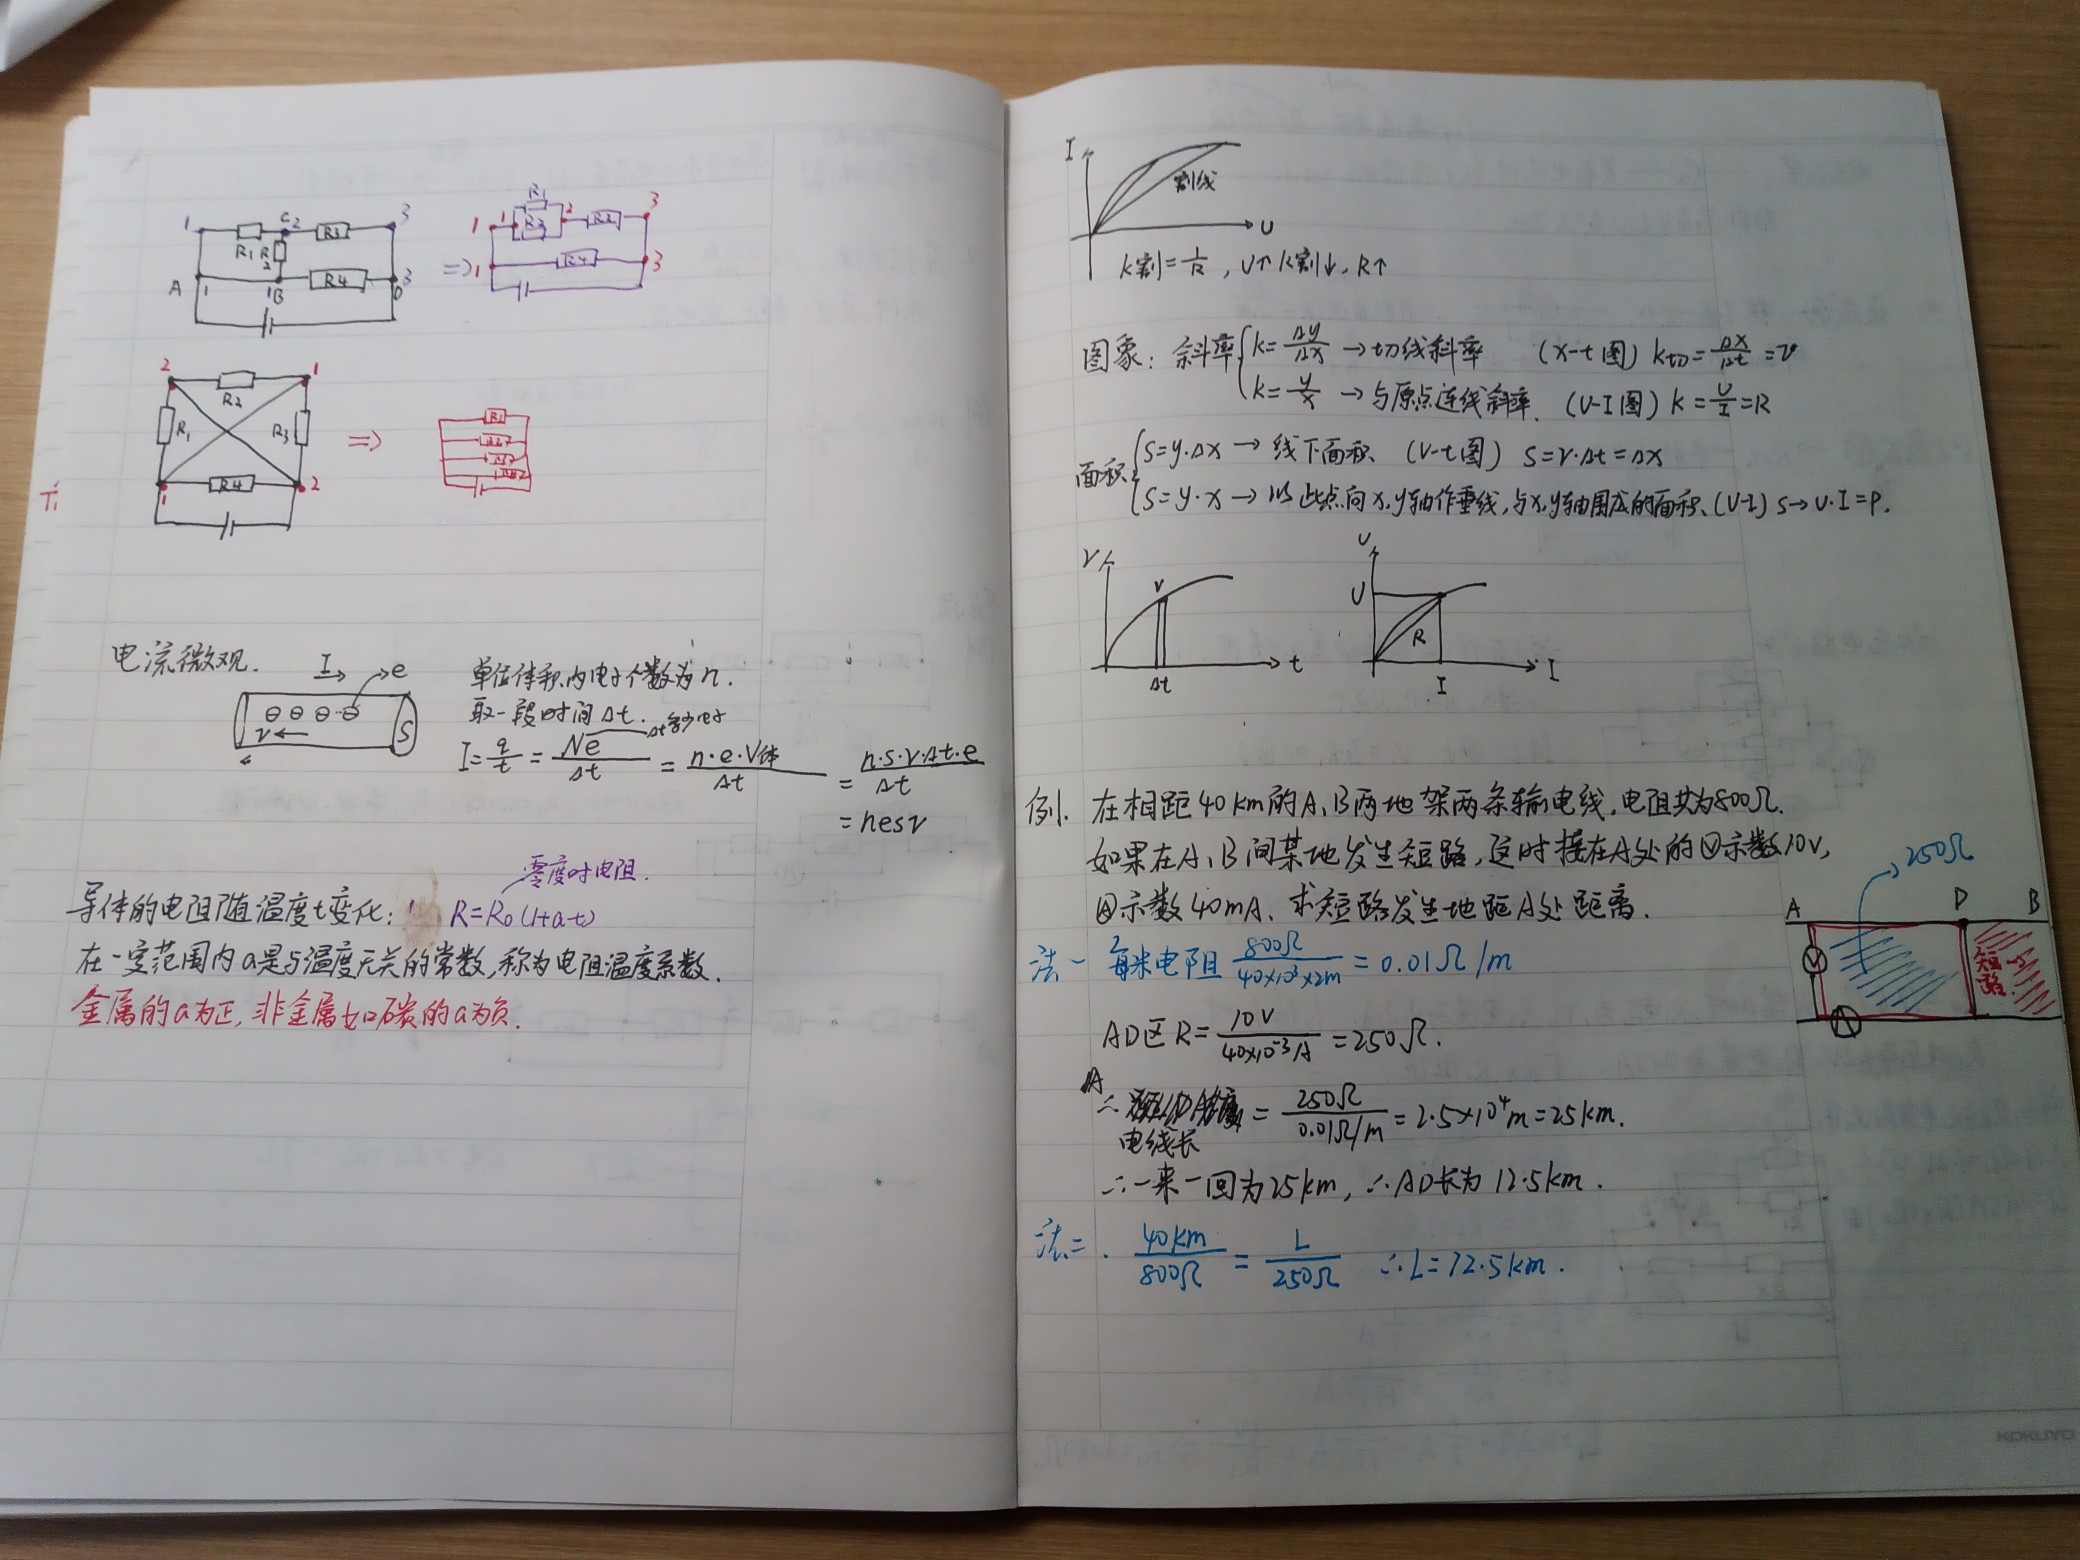 1 C 2 3
R1 R2 R3
A 1 1B R4 D 3
⇒
1 1 R1 R2 2 R3 3
1 R4 3
2 1
R2
R1 R3
⇒
1 R4 2
R1
电流微观.
I→ e
⊖⊖⊖⊖
v← S
单位体积内电子个数为n.
取一段时间Δt.
I=q/t=Ne/Δt=n·e·V体/Δt=n·s·v·Δt·e/Δt
=nesv
零度时电阻.
导体的电阻随温度t变化: R=R0(1+at)
在一定范围内a是与温度无关的常数,称为电阻温度系数.
金属的a为正,非金属如碳的a为负.
I
割线
U
k割=1/R, U↑ k割↓, R↑
图象: 斜率{k=Δy/Δx→切线斜率 (x-t图) k切=Δx/Δt=v
k=y/x→与原点连线斜率. (U-I图) k=U/I=R
面积{S=y·Δx→线下面积 (v-t图) S=v·Δt=Δx
S=y·x→以此点向x,y轴作垂线,与x,y轴围成的面积、(U-I) S→U·I=P.
v v t Δt
U U R I I
例. 在相距40km的A、B两地架两条输电线,电阻共为800Ω.
如果在A、B间某地发生短路,这时接在A处的Ⓥ示数10V,
Ⓐ示数40mA、求短路发生地距A处距离.
250Ω
A D B
V
短路.
A
法一 每米电阻 800Ω/40×10³×2m=0.01Ω/m
AD区R=10V/40×10⁻³A=250Ω.
∴ 电线长=250Ω/0.01Ω/m=2.5×10⁴m=25km.
∴一来一回为25km, ∴AD长为12.5km.
法二. 40km/800Ω=L/250Ω ∴L=12.5km.